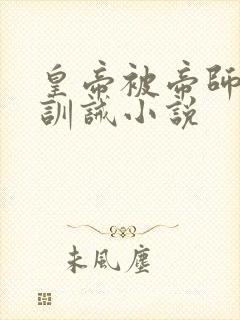 皇帝被帝師
訓誡小說
未風塵